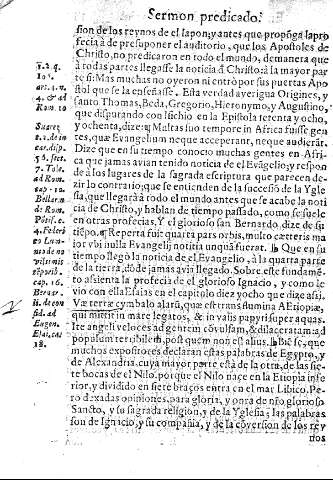 Sermon predicado.
sion de los reynos de el Iapon; y antes que propōga la pro
fecia à de presuponer el auditorio, que los Apostoles de
Christo, no predicaron en todo el mundo, de manera que
à todas partes llegasse la noticia d̄ Christo: à la mayor par
te si: Mas muchos no oyeron ni tuvieron por sus puertas Apos
tol que se la enseñasse. Esta verdad averigua Origines, y
santo Thomas, Beda, Gregorio, Hieronymo, y Augustino,
que disputando con Isichio en la Epistola setenta y ocho,
y ochenta, dize: Multas suo tempore in Africa fuisse gen
tes, quæ Evangelium neque acceperant, neque audierāt.
Dize que en su tiempo conoco muchas gentes en Afri
ca que jamas avian tenido noticia de el Evāgelio; y respon
de à los lugares de la sagrada escriptura que parecen de-
zir lo contrario; que se entienden de la successiō de la Ygle
sia, que llegarà à todo el mundo antes que se acabe la noti
cia de Christo, y hablan de tiempo passado, como se suele
en otras profecias. Y el glorioso san Bernardo, dize de su
tiēpo. Reperta fuit quarta pars orbis, multo cæteris ma
ior vbi nulla Evangelij notitia unquā fuerat. Que en su
tiempo llegò la noticia de el Evangelio, à la quarta parte
de la tierra, dōde jamàs avia llegado. Sobre este fundamē-
to assienta la profecia de el glorioso Ignacio, y como le
vio con ella Esaias en el capitulo diez y ocho que dize assi.
Væ terræ cymbalo alarū, quæ est trans flumina AEtiopiæ,
qui mittit in mare legatos, & in vasis papyri super aquas.
Ite angeli veloces ad gentem cōvulsam, & dilaceratam: ad
populum terribilem, post quem non est alius. Biē sè, que
muchos expositores declaran estas palabras de Egypto, y
de Alexandria, cuya mayor parte està de la otra, de las sie
te bocas de el Nilo, porque el Nilo nace en la Etiopia infe
rior, y dividido en siete braços entra en el mar Libico. Pe
ro dexadas opiniones, para gloria, y onra de nr̄o glorioso
Sancto, y su sagrada religion, y de la Yglesia; las palabras
son de Ignacio, y su compañia, y de la cōversion de los rey
nos
1. 2. q.
art. 1. n.
4. & ad
Rom. 10
Suarez
ad Rom.
cap. 10.
de Rom.
Pōtif. c.
cap. 16.
Eugen.
18.